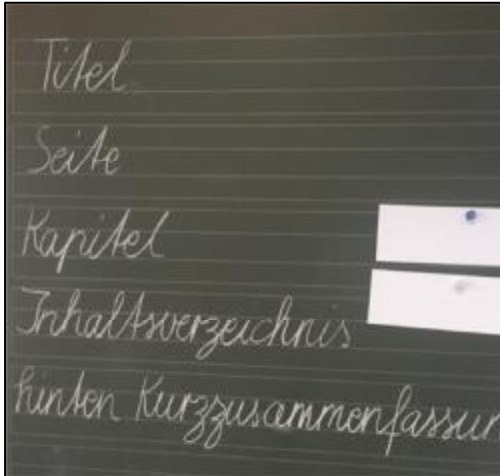 Titel
Seite
Kapitel
Inhaltsverzeichnis
hinten Kurzzusammenfassun